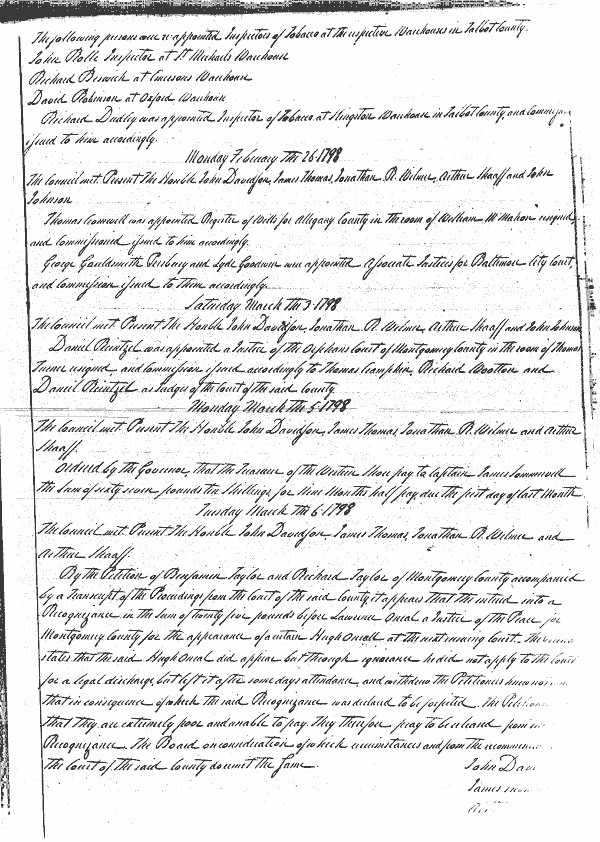 The following persons were re-appointed Inspectors of Tobacco at the respective Warehouses in Talbot County.
John Rolle Inspector at St Michaels Warehouse
Richard Beswick at Emersons Warehouse
David Robinson at Oxford Warehouse
Richard Dudley was appointed Inspector of Tobacco at Kingston Warehouse in Talbot County, and Commission
issued to him accordingly.
Monday February the 26 1798
The Council met. Present The Honble John Davidson, James Thomas, Jonathan R. Wilmer, Arthur Shaaff and John
Johnson
Thomas Cromwell was appointed Register of Wills for Allegany County in the room of William McMahon resigned,
and Commissioned issued to him accordingly.
George Gouldsmith Presbury and Lyde Goodwin were appointed Associate Justices for Baltimore City Court,
and Commission issued to them accordingly.
Saturday March the 3 1798
The Council met. Present The Honble John Davidson, Jonathan R. Wilmer, Arthur Shaaff and John Johnson
Daniel Reintzel was appointed a Justice of the Orphans Court of Montgomery County in the room of Thomas
Turner resigned and Commission issued accordingly to Thomas Lamphin, Richard Wootton and
Daniel Reintzel as Judges of the Court of the said County.
Monday March the 5 1798
The Council met. Present The Honble John Davidson, James Thomas, Jonathan R. Wilmer and Arthur
Shaaff.
Ordered by the Governor, that the Treasurer of the Western Shore pay to Captain James Sommervell
the Sum of sixty seven pounds ten Shillings, for Nine Months half pay due the first day of last Month
Tuesday March the 6 1798
The Council met. Present The Honble John Davidson James Thomas, Jonathan R. Wilmer and
Arthur Shaaff.
By the Petition of Benjamin Taylor and Richard Taylor of Montgomery County accompanied
by a Transcript of the Proceedings from the Court of the said County it appears that the entered into a
Recognizance in the sum of twenty five pounds before Lawrence Oneal a Justice of the Peace for
Montgomery County for the appearance of a certain Hugh Oneall at the next ensuing Court. The
states that the said Hugh Oneal did appear but through ignorance he did not apply to the Court
for a legal discharge, but left it after some days attendance, and withdrew the Petitioners
that in consequence of which the said Recognizance was declared to be forfeited. The
that they are extremely poor and unable to pay. They therefore pray to be released from
Recognizance. The Board on consideration of which circumstances and from the
the Court of the said County do remit the same.
John
James